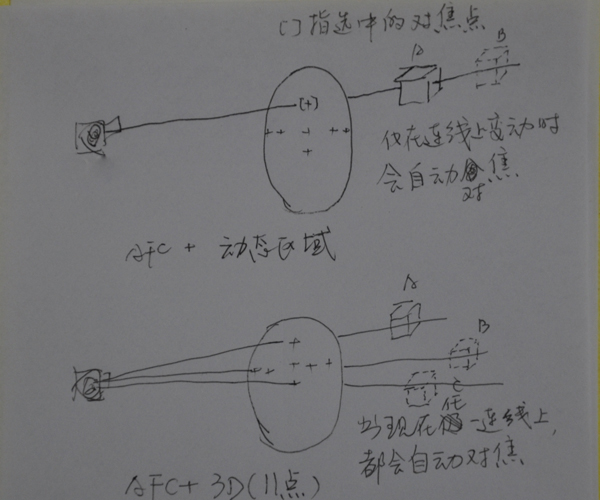 [ ]指选中的对焦点
A
B
[+]
仅在连线上变动时
会自动对焦
AFC + 动态区域
A
B
C
出现在任一连线上,
都会自动对焦
AFC+3D(11点)